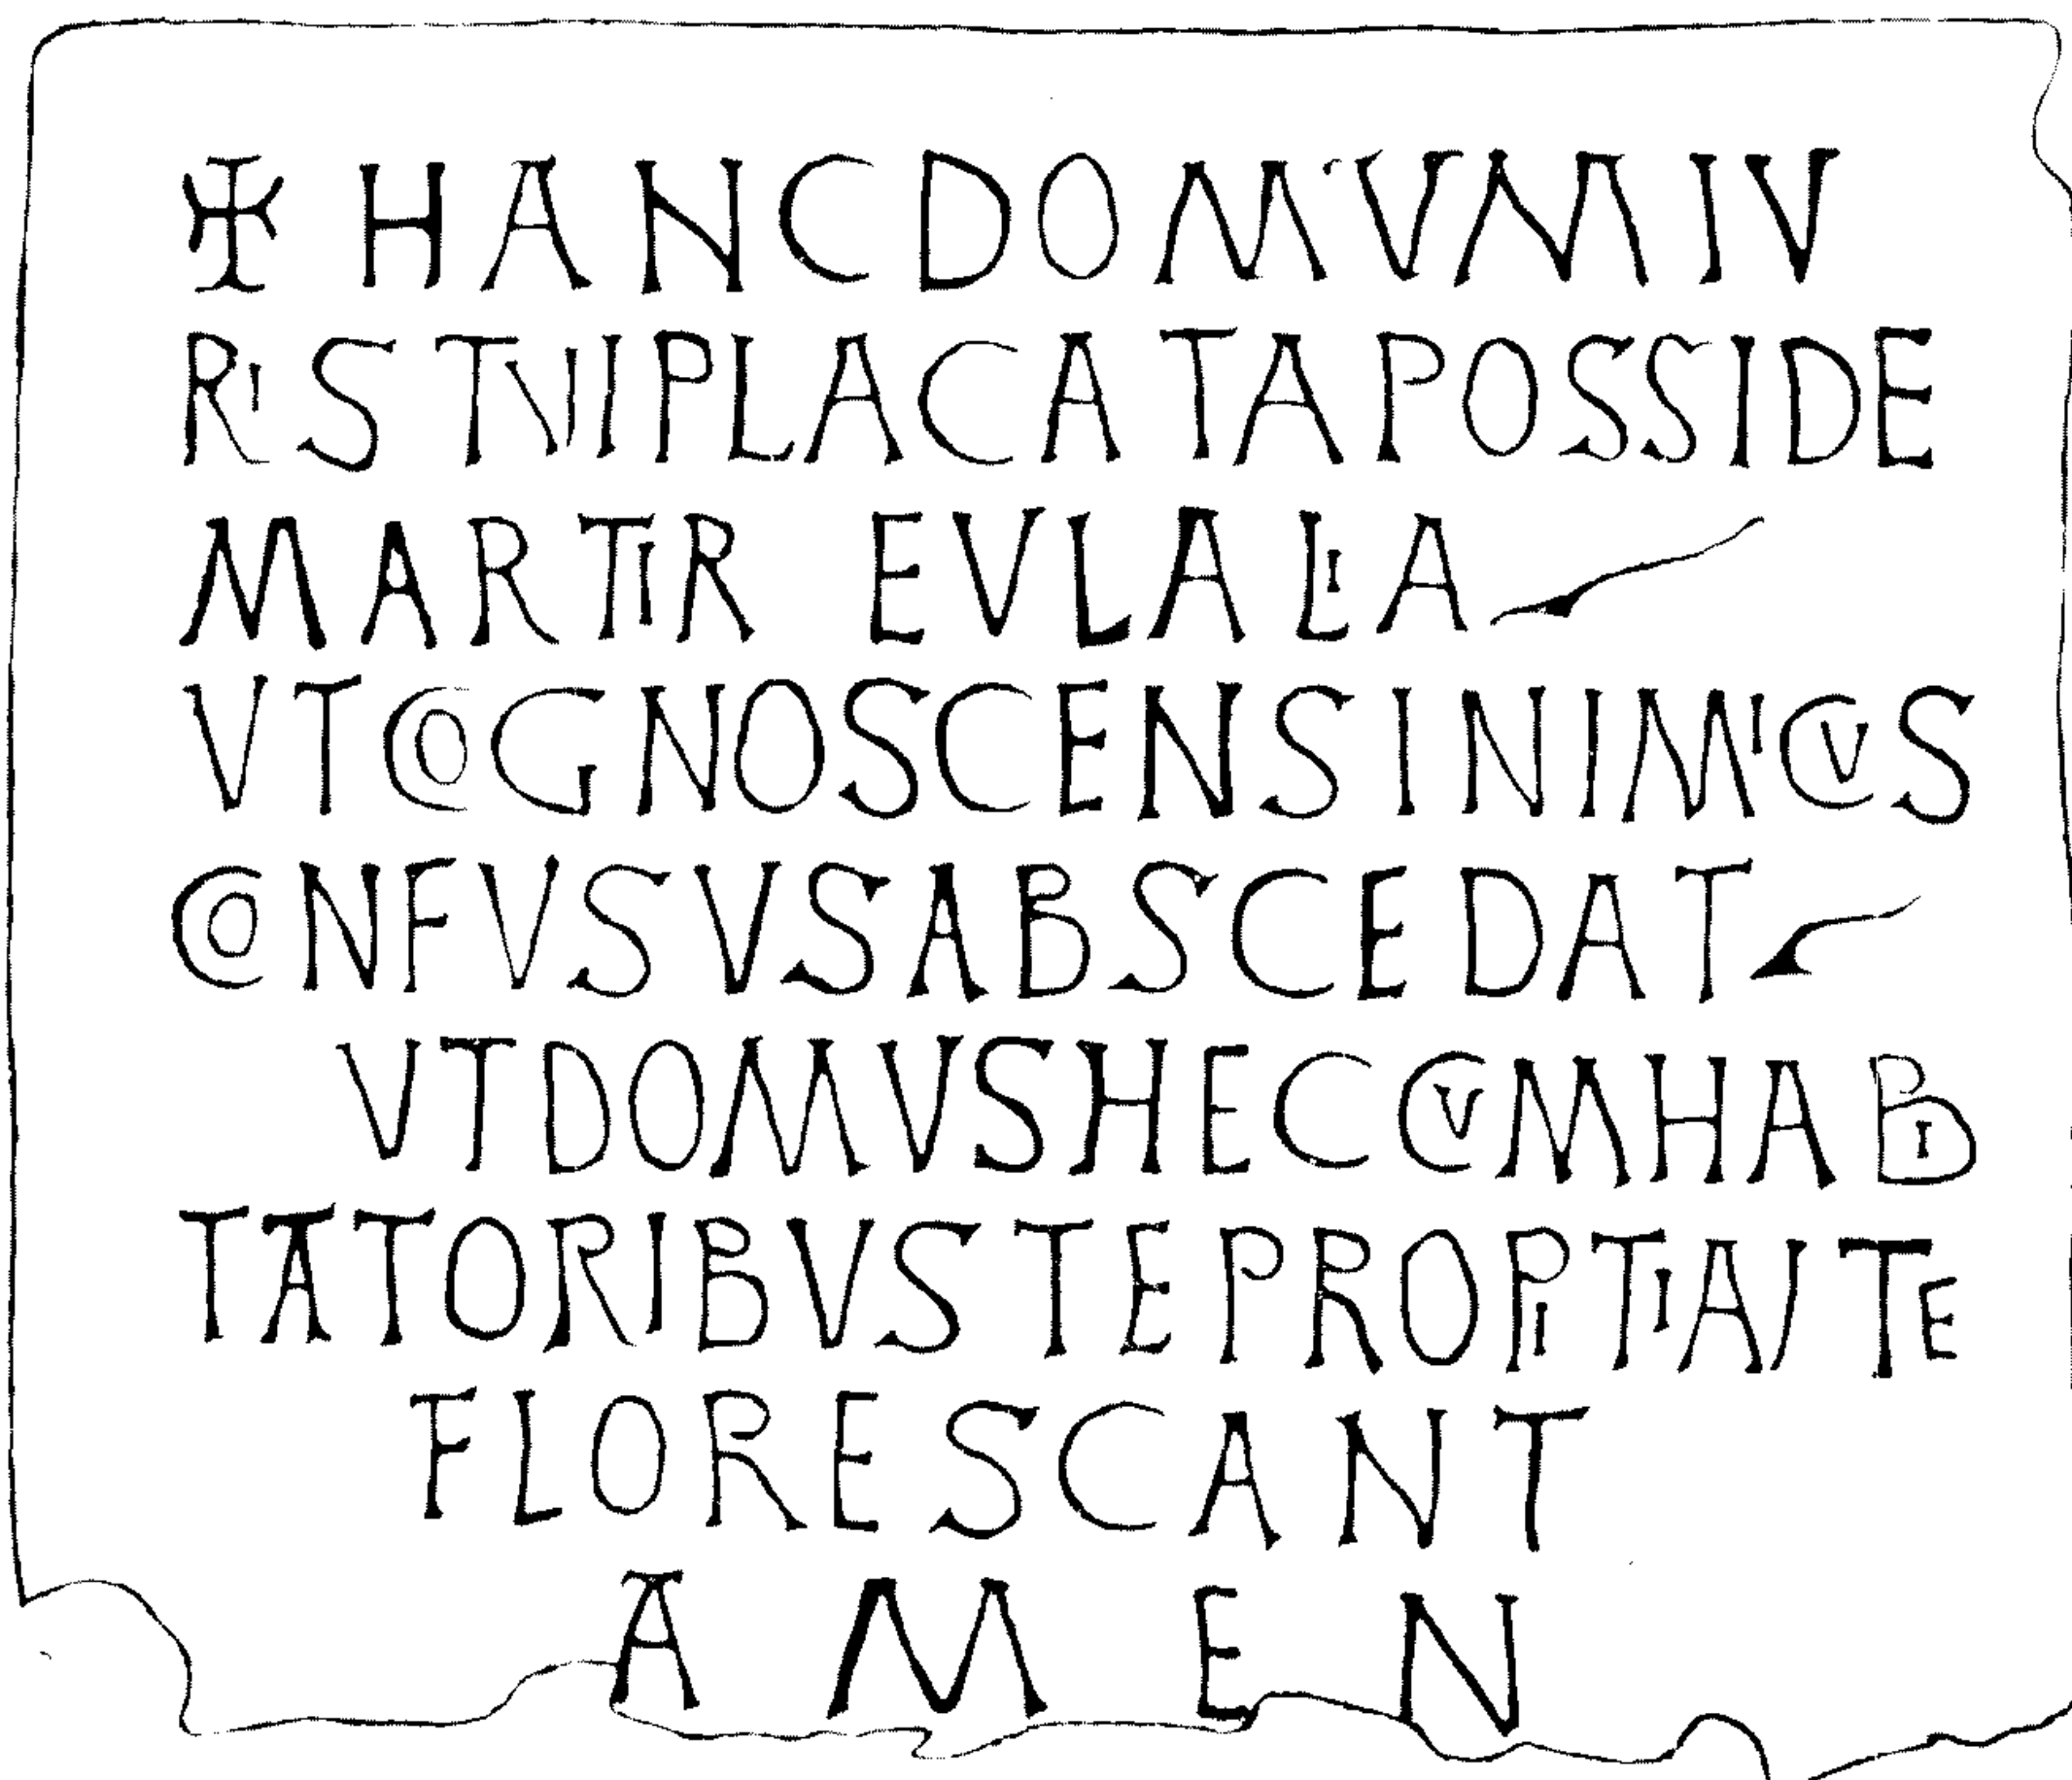 ✠ HANCDOMVMIV
RISTVIPLACATAPOSSIDE
MARTIR EVLALIA
VTCOGNOSCENSINIMICVS
CONFVSVSABSCEDAT
VTDOMVSHECCVMHABI
TATORIBVSTEPROPITIANTE
FLORESCANT
AMEN